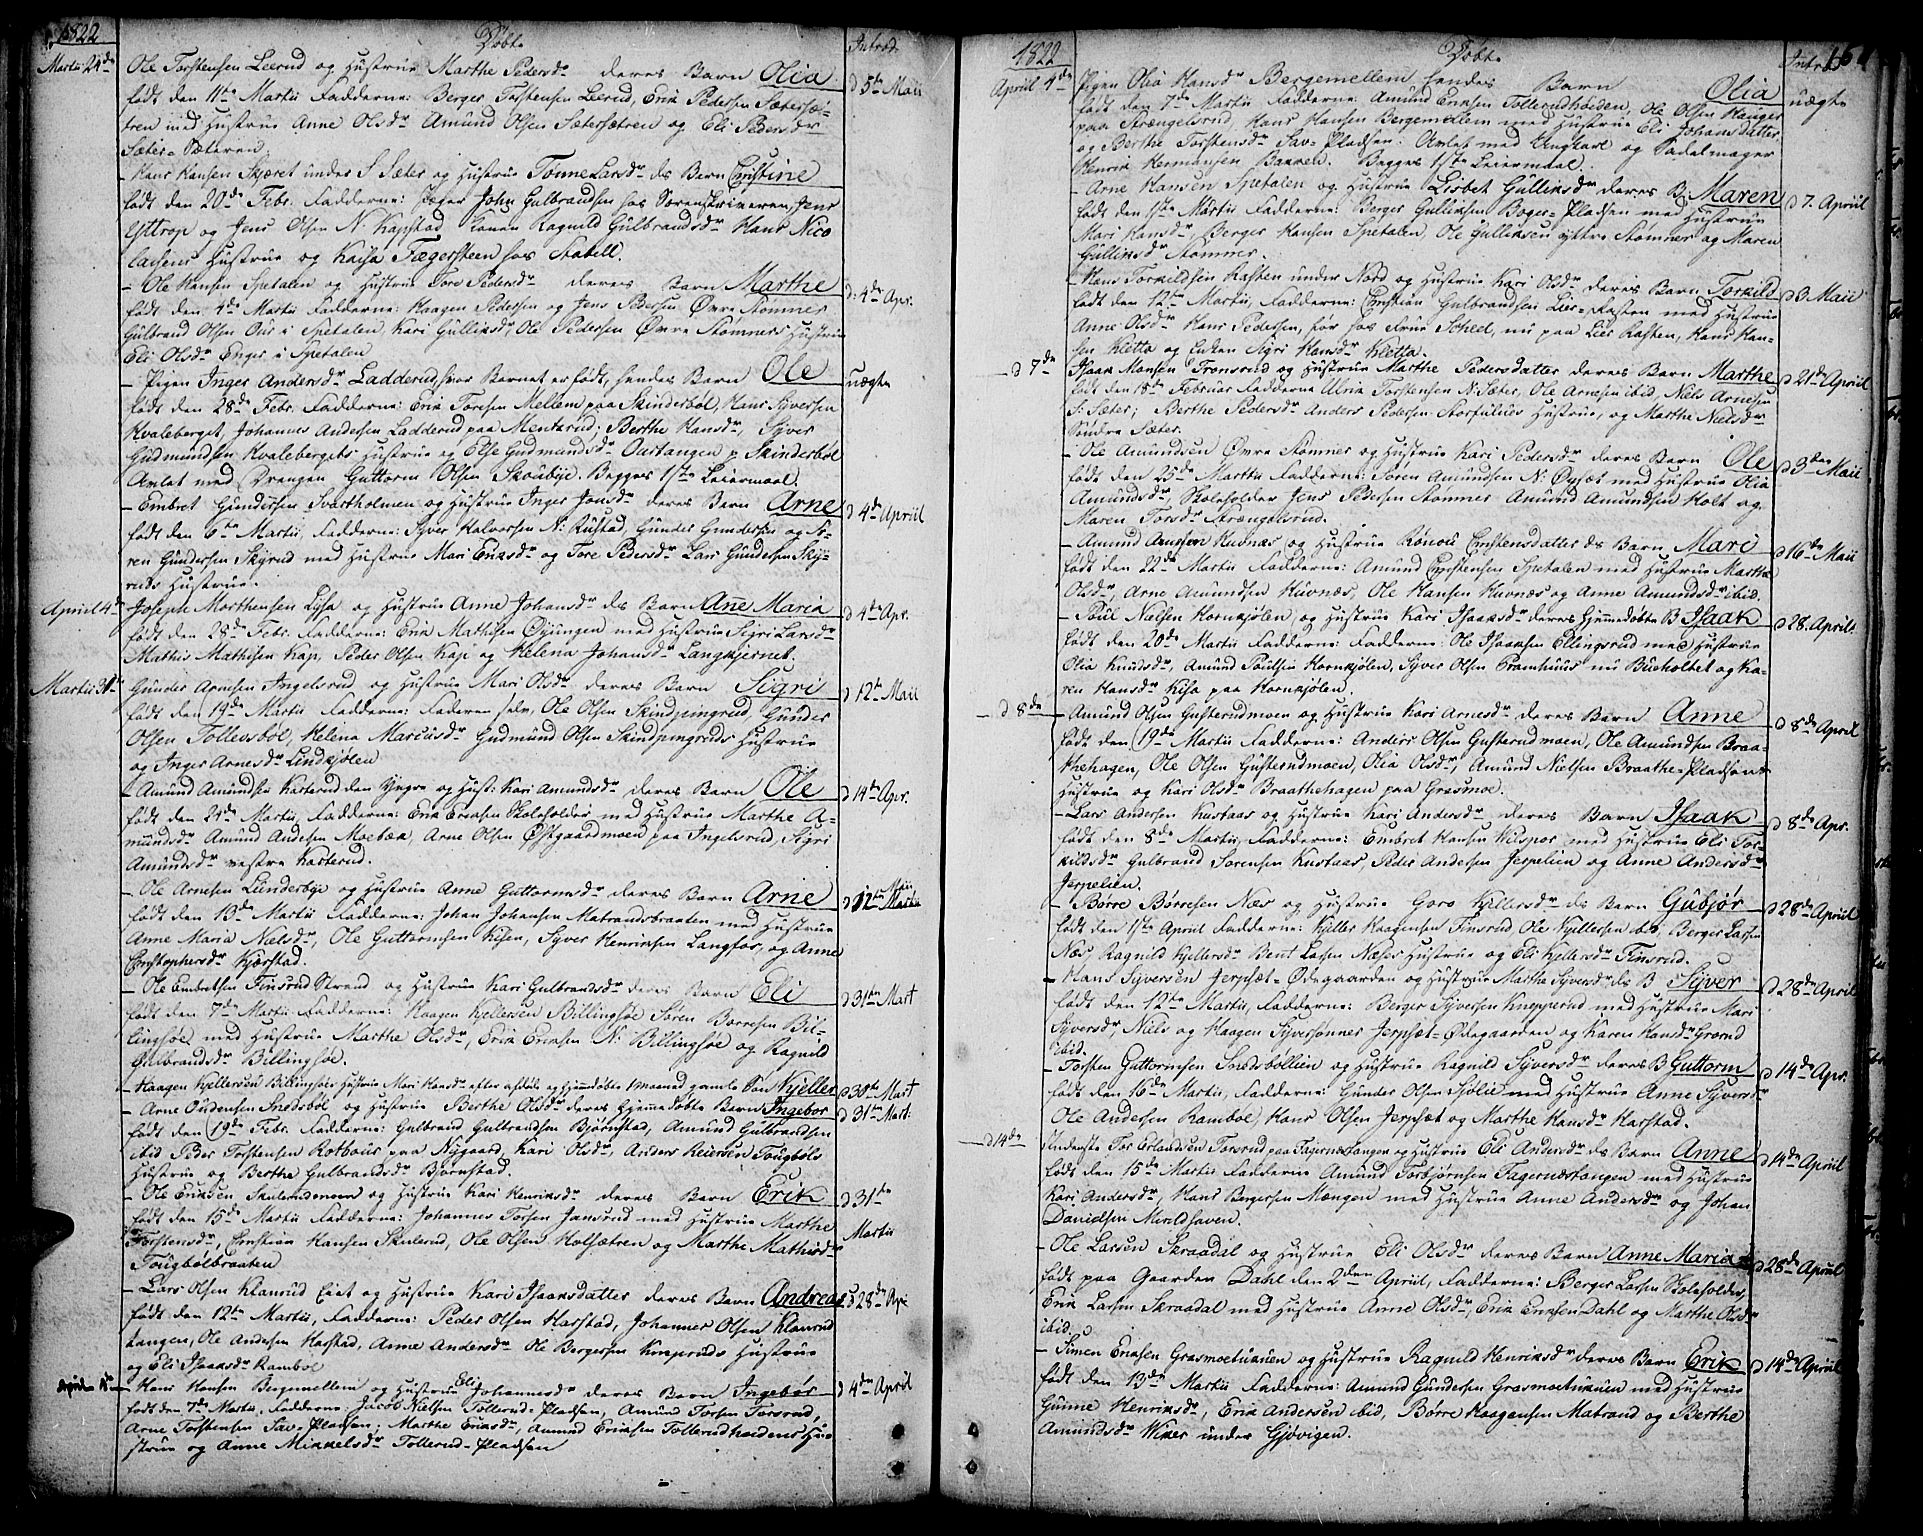 1822 Døbte Introd.
Martii 24de Ole Torstensen Leerud og Hustrue Marthe Pedersdr deres Barn Olia d 5te Maii
født den 11te Martii Fadderne: Berger Torstensen Leerud, Erik Pedersen Sætersæ-
tren med Hustrue Anne Olsdr Amund Olsen Sætersætren og Eli Pedersdr
Sæter-Sæteren.
- Hans Hansen Skjæret under S. Sæter og Hustrue Tønne Larsdr ds Barn Christine
født den 20de Febr. Fadderne: Jæger John Gulbrandsen hos Sorenskriveren, Jens
Ysttrop og Jens Olsen N. Kapstad Konen Ragnild Gulbrandsdr Hans Nico
laisens Hustrue og Kaisa Fægersteen hos Stabell.
- Ole Hansen Spetalen og Hustrue Tore Pedersdr deres Barn Marthe d. 4de Apr.
født den 4de Martii Fadderne: Haagen Pedersen og Jens Bersen Øvre Stømner
Gulbrand Olsen Ous i Spetalen, Kari Gulliksdr, Ole Pedersen Øvre Stømners Hustrue
Eli Olsdr Enger i Spetalen
- Pigen Inger Andersdr Ladderud, hvor Barnet er født, hendes Barn Ole uægte
født den 28de Febr. Fadderne: Erik Toresen Mellem paa Skinderbøl, Hans Syversen
Kvaleberget, Johannes Andersen Ladderud paa Mentzrud; Berthe Hansdr, Syver
Gudmundsen Kvalebergets Hustrue og Else Gudmundsdr Ourstangen p Skinderbøl
Avlet med Drengen Guttorm Olsen Skoubye. Begges 1ste Leiermaal.
- Embret Gundersen Svartholmen og Hustrue Inger Jonsdr deres Barn Arne d 4de Apriil
født den 6te Martii, Fadderne: Syver Halvorsen N. Rustad, Gunder Gundersen og Sø-
ren Gundersen Skyrud med Hustrue Mari Eriksdr og Tore Pedersdr Lars Gundersen Sky-
ruds Hustrue.
Apriil 4de Joseph Morthensen Lysa og Hustrue Anne Johansdr ds Barn Anne Maria d 4de Apr.
født den 28de Febr. Fadderne: Erik Mathisen Øyungen med Hustrue Sigri Larsdr
Mathis Mathisen Kap, Peder Olsen Kap og Helena Johansdr Langkjernet.
Martii 31te Gunder Arnesen Ingelsrud og Hustrue Mari Olsdr deres Barn Sigri d 12te Maii
født den 19de Martii Fadderne: Faderen selv, Ole Olsen Skindpungrud, Gunder
Olsen Tollevsbøl, Helena Marcusdr Gudmund Olsen Skindpungruds Hustrue
og Inger Arnesdr Lindkjølen
- Amund Amundsen Karterud den Yngre og Hust: Kari Amundsdr deres Barn Ole d 14de Apr.
født den 24de Martii, Fadderne: Erik Ericsen Skoleholder med Hustrue Marthe A-
mundsdr Amund Andersen Moebak, Arne Olsen Østgaardmoen paa Ingelsrud, Sigri
Amundsdr vestre Karterud.
- Ole Arnesen Lunderbye og Hustrue Anne Guttormsdr deres Barn Arne d 12te Maii
født den 13de Martii Fadderne: Johan Johansen Matrandsbraaten med Hustrue
Anne Maria Nielsdr, Ole Guttormsen Kisen, Syver Henriksen Langfos, og Anne
Christophersdr Kjærstad.
- Ole Embretsen Finsrud Strand og Hustrue Kari Gulbrandsdr deres Barn Eli d 31te Mart
født den 7de Martii Fadderne: Haagen Kjellersen Billingsøe Søren Børresen Bil-
lingsøe med Hustrue Marthe Olsdr, Erik Eriksen N: Billingsøe og Ragnild
Gulbrandsdr Billingsøe.
- Haagen Kjellersen Billingsøes Hustrue Mari Hansdr efter afdøde og hjemdøbte 1 Maaned gamle Søn Kjeller d 30te Mart
- Arne Oudensen Snedsbøl og Hustrue Berthe Olsdr deres hjemmedøbte Barn Ingebor d 31te Mart:
født den 19de Febr. Fadderne: Gulbrand Gulbrandsen Bjørnstad, Amund Gulbrandsen
ibid Peder Torstensen Rotbous paa Nygaard, Kari Olsdr, Anders Reiersen Tougbøls
Hustrue og Berthe Gulbrandsdr Bjørnstad.
- Ole Eriksen Skulerudmoen og Hustrue Kari Henriksdr deres Barn Erik d 31te
født den 15de Martii Fadderne: Johannes Torsen Jansrud med Hustrue Marthe Martii
Torstensdr, Christian Hansen Skulerud, Ole Olsen Holsætren og Marthe Mathisdr
Tougbølbraaten
- Lars Olsen Klanrud Eiet og Hustrue Kari Isaaksdatter deres Barn Andreas d 28de Apr
født den 12te Martii, Fadderne: Peder Olsen Harstad, Johannes Olsen Klanrud
tangen, Ole Andersen Harstad, Anne Andersdr Ole Bergersen Kneprruds Hustrue
og Eli Isaaksdr Ramboe
April 4de Hans Hansen Bergemellem og Hustrue Eli Johannesdr deres Barn Ingebør d 4de April
født den 7de Martii. Fadderne: Jacob Nielsen Tollerud-Pladsen, Amund Torsen Torsrud,
Arne Torstensen Sav-Pladsen, Marthe Eriksdr, Amund Eriksen Tollerudheidens Hu-
strue og Anne Mikkelsdr Tollerud-Pladsen
1822 Døbte Introd 161
Apriil 4de Pigen Olia Hansdr Bergemellem hendes Barn Olia uægte
født den 7de Martii Fadderne: Amund Eriksen Tollerudheiden, Ole Olsen Hauger
paa Strængelsrud, Hans Hansen Bergemellem med Hustrue Eli Johansdatter
og Berthe Torstensdr Sav-Pladsen: Avlet med Ungkarl og Sadelmager
Henrik Hermansen Bakken. Begges 1ste Leiermaal.
- Arne Hansen Spetalen og Hustrue Lisbet Gulliksdr deres B: Maren d 7. Apriil
født den 1ste Martii Fadderne: Berger Gulliksen Boger-Pladsen med Hustrue
Mari Hansdr, Berger Hansen Spetalen, Ole Gulliksen yttre Stømner og Maren
Gulliksdr Stømner.
- Hans Torkildsen Rasten under Nord og Hustrue Kari Olsdr deres Barn Torkild d 3 Maii
født den 12te Martii, Fadderne: Christian Gulbrandsen Lier-Rasten med Hustrue
Anne Olsdr Hans Pedersen, før hos Frue Scheel, nu paa Lier Rasten, Hans Han-
sen Kletta og Enken Sigri Hansdr Kletta.
- d 7de Isaak Monsen Tronsrud og Hustrue Marthe Pedersdatter deres Barn Marthe d 21de Apriil
født den 18de Februar Fadderne Ulrik Torstensen N: Sæter, Ole Arnesen ibid, Niels Arnesen
S: Sæter; Berthe Pedersdr Anders Pedersen Storfulues Hustrue, og Marthe Nielsdr
Søndre Sæter.
- Ole Amundsen Øvre Stømner og Hustrue Kari Pedersdr deres Barn Ole d 3den Maii
født den 25de Martii Fadderne: Søren Amundsen N: Oppsæt med Hustrue Olia
Amundsdr, Skoleholder Jens Pedersen Stømner Amund Amundsen Holt og
Maren Torsdr Strængelsrud.
- Amund Arnesen Huvnæs og Hustrue Rønnou Christensdatter ds Barn Mari d 16de Maii
født den 22de Martii Fadderne: Amund Christensen Spetalen med Hustrue Marthe
Olsdr, Arne Amundsen Huvnæs, Ole Hansen Huvnæs og Anne Amundsdr ibid.
- Poul Nielsen Kornkjølen, og Hustrue Kari Isaaksdr deres hjemmedøbte B Isaak d 28. April
født den 20de Martii Fadderne: Fadderne: Ole Isaaksen Ellingsrud med Hustrue
Olia Knudsdr, Amund Poulsen Kornkjølen, Syver Olsen Framhuus nu Bueholtet og Ka-
ren Hansdr Kisa paa Kornkjølen.
- d 8de Amund Olsen Gusterudmoen og Hustrue Kari Arnesdr deres Barn Anne d 8de April
født den 19de Martii Fadderne: Anders Olsen Gusterudmoen, Ole Amundsen Braa-
thehagen, Ole Olsen Gusterudmoen, Olia Olsdr, Amund Nielsen Braathe-Pladsens
Hustrue og Kari Olsdr Braathehagen paa Grasmoe.
- Lars Andersen Kustaas og Hustrue Kari Andersdr deres Barn Isaak d 8de Apr.
født den 8de Martii, Fadderne: Embret Hansen Wilspor med Hustrue Eli Tor-
kildsdr Gulbrand Sørensen Kustaas, Peder Andersen Jerpelien og Anne Andersdr
Jerpelien.
- Børre Børresen Næs og Hustrue Goro Kjellersdr ds Barn Gubjør d 28de Apriil
født den 1ste Apriil Fadderne: Kjeller Haagensen Finsrud Ole Kjellersen ibid, Berger Larsen
Næs, Ragnild Kjellersdr Bent Larsen Næses Hustrue og Eli Kjellersdr Finsrud.
- Hans Syversen Jerpset-Ødegaarden og Hustrue Marthe Syversdr ds B Syver d 28de April
født den 12te Martii, Fadderne: Berger Syversen Knepperud med Hustrue Mari
Syversdr Niels og Haagen Syversønner Jerpset-Ødegaarden og Karen Hansdr Grorud
ibid.
- Torsten Guttormsen Snedsbøllien og Hustrue Ragnild Syversdr deres B Guttorm d 14de Apr.
født den 16de Martii, Fadderne: Gunder Olsen Sjølie med Hustrue Anne Syversdr
Ole Andersen Ramboe, Hans Olsen Jerpset og Marthe Hansdr Harstad.
- d 14de Inderste Tor Erlandsen Torsrud paa Fagernestangen og Hustrue Eli Andersdr ds Barn Anne d 14de Apriil
født den 15de Martii Fadderne Amund Torbjørnsen Fagernæstangen med Hustrue
Kari Andersdr, Hans Bergersen Mængen med Hustrue Anne Andersdr og Johan
Davidsen Morildhaven.
- Ole Larsen Skraadal og Hustrue Eli Olsdr deres Barn Anne Maria d 28de Apriil
født paa Gaarden Dahl den 2den Apriil, Fadderne: Berger Larsen Skoleholder,
Erik Larsen Skraadal med Hustrue Anne Olsdr, Erik Eriksen Dahl og Marthe Olsdr
ibid.
- Simen Eriksen Grasmoetunuen og Hustrue Ragnild Henriksdr deres Barn Erik d 14de Apriil
født den 13de Martii Fadderne: Amund Gundersen Grasmoetunuen med Hustrue
Gunne Henriksdr, Erik Andersen ibid, Børre Haagensen Matrand og Berthe
Amundsdr Wiker under Gjøvigen.